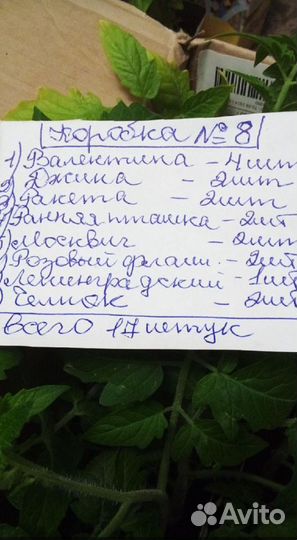 Коробка № 8
1) Валентина - 4 шт
2) Джина - 2 шт
3) Ракета - 2 шт
4) Ранняя пташка - 2 шт
5) Москвич - 2 шт
) Розовый флами. - 2 шт
) Ленинградский - 1 шт
) Челнок - 2 шт
всего 17 штук
Avito